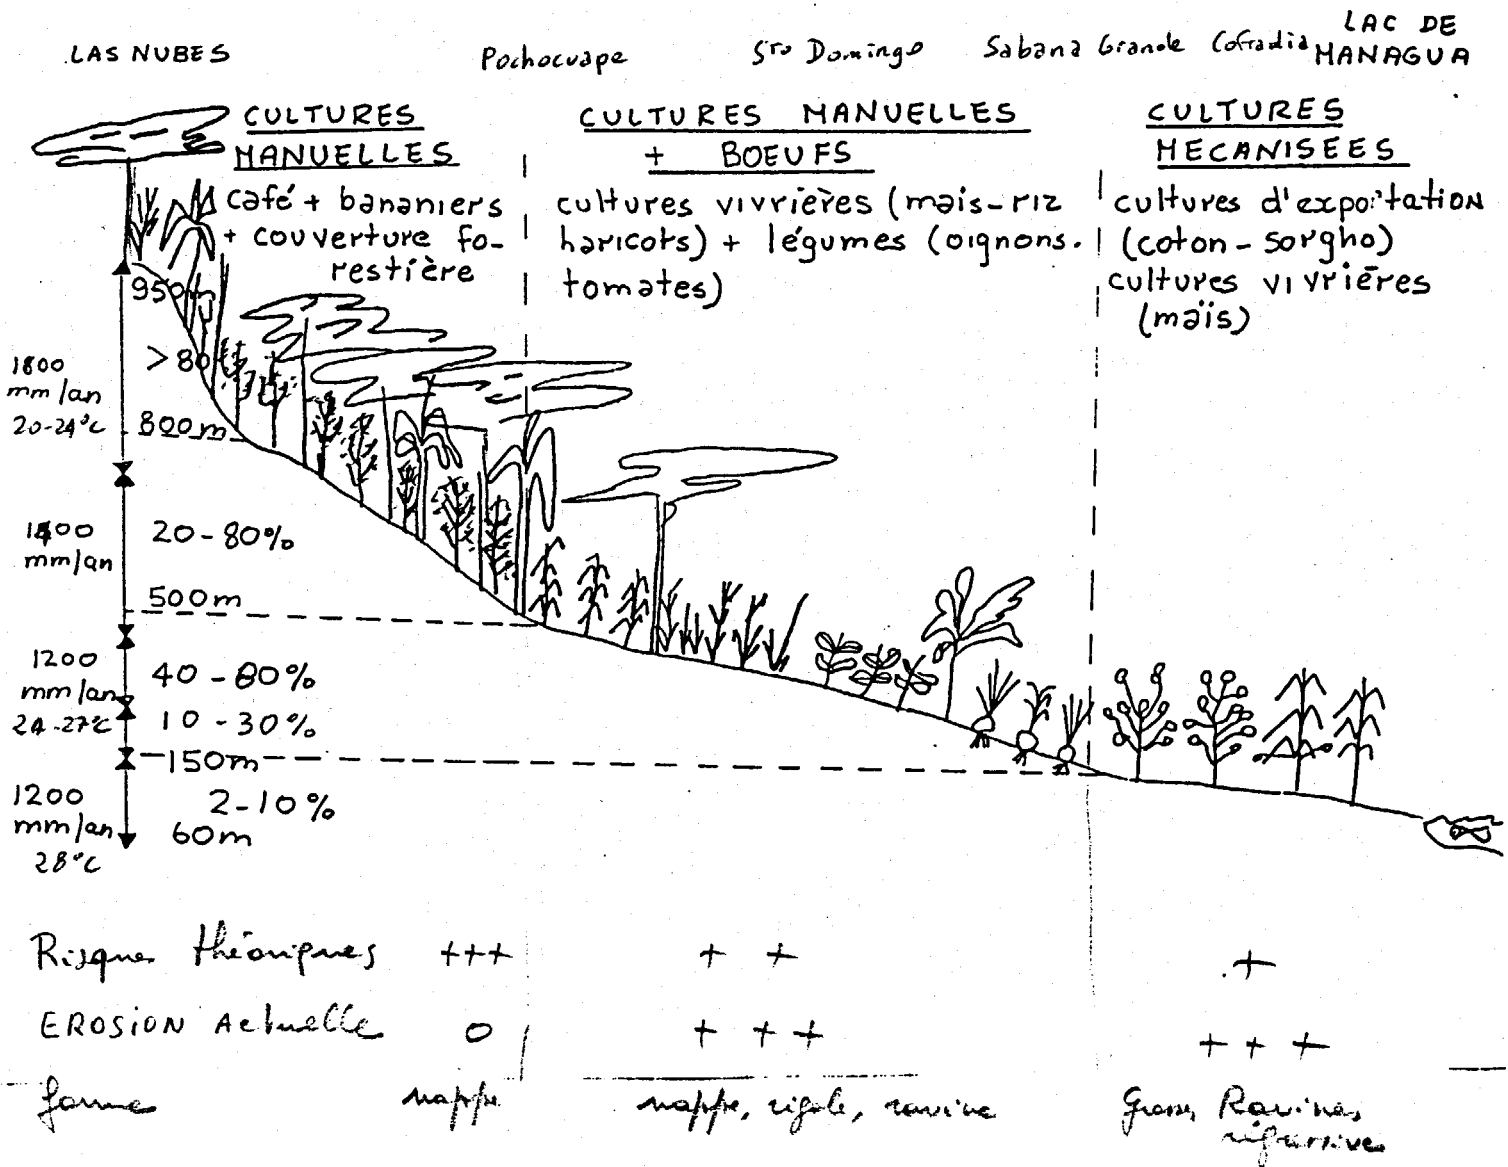 LAS NUBES
Pochocuape
Sto Domingo
Sabana Grande
Cofradia
LAC DE
MANAGUA
CULTURES
MANUELLES
café + bananiers
+ couverture fo-
restière
CULTURES MANUELLES
+ BOEUFS
cultures vivrières (mais-riz
haricots) + légumes (oignons.
tomates)
CULTURES
MECANISEES
cultures d'exportation
(coton-sorgho)
cultures vivrières
(maïs)
950m
1800
mm/an
20-24°C
>80
800m
1400
mm/an
20-80%
500m
1200
mm/an
24-27°C
40-80%
10-30%
150m
1200
mm/an
28°C
2-10%
60m
Risques théoriques +++ ++ +
EROSION Actuelle 0 +++ +++
forme nappe nappe, rigole, ravine Grosses Ravines
régressives